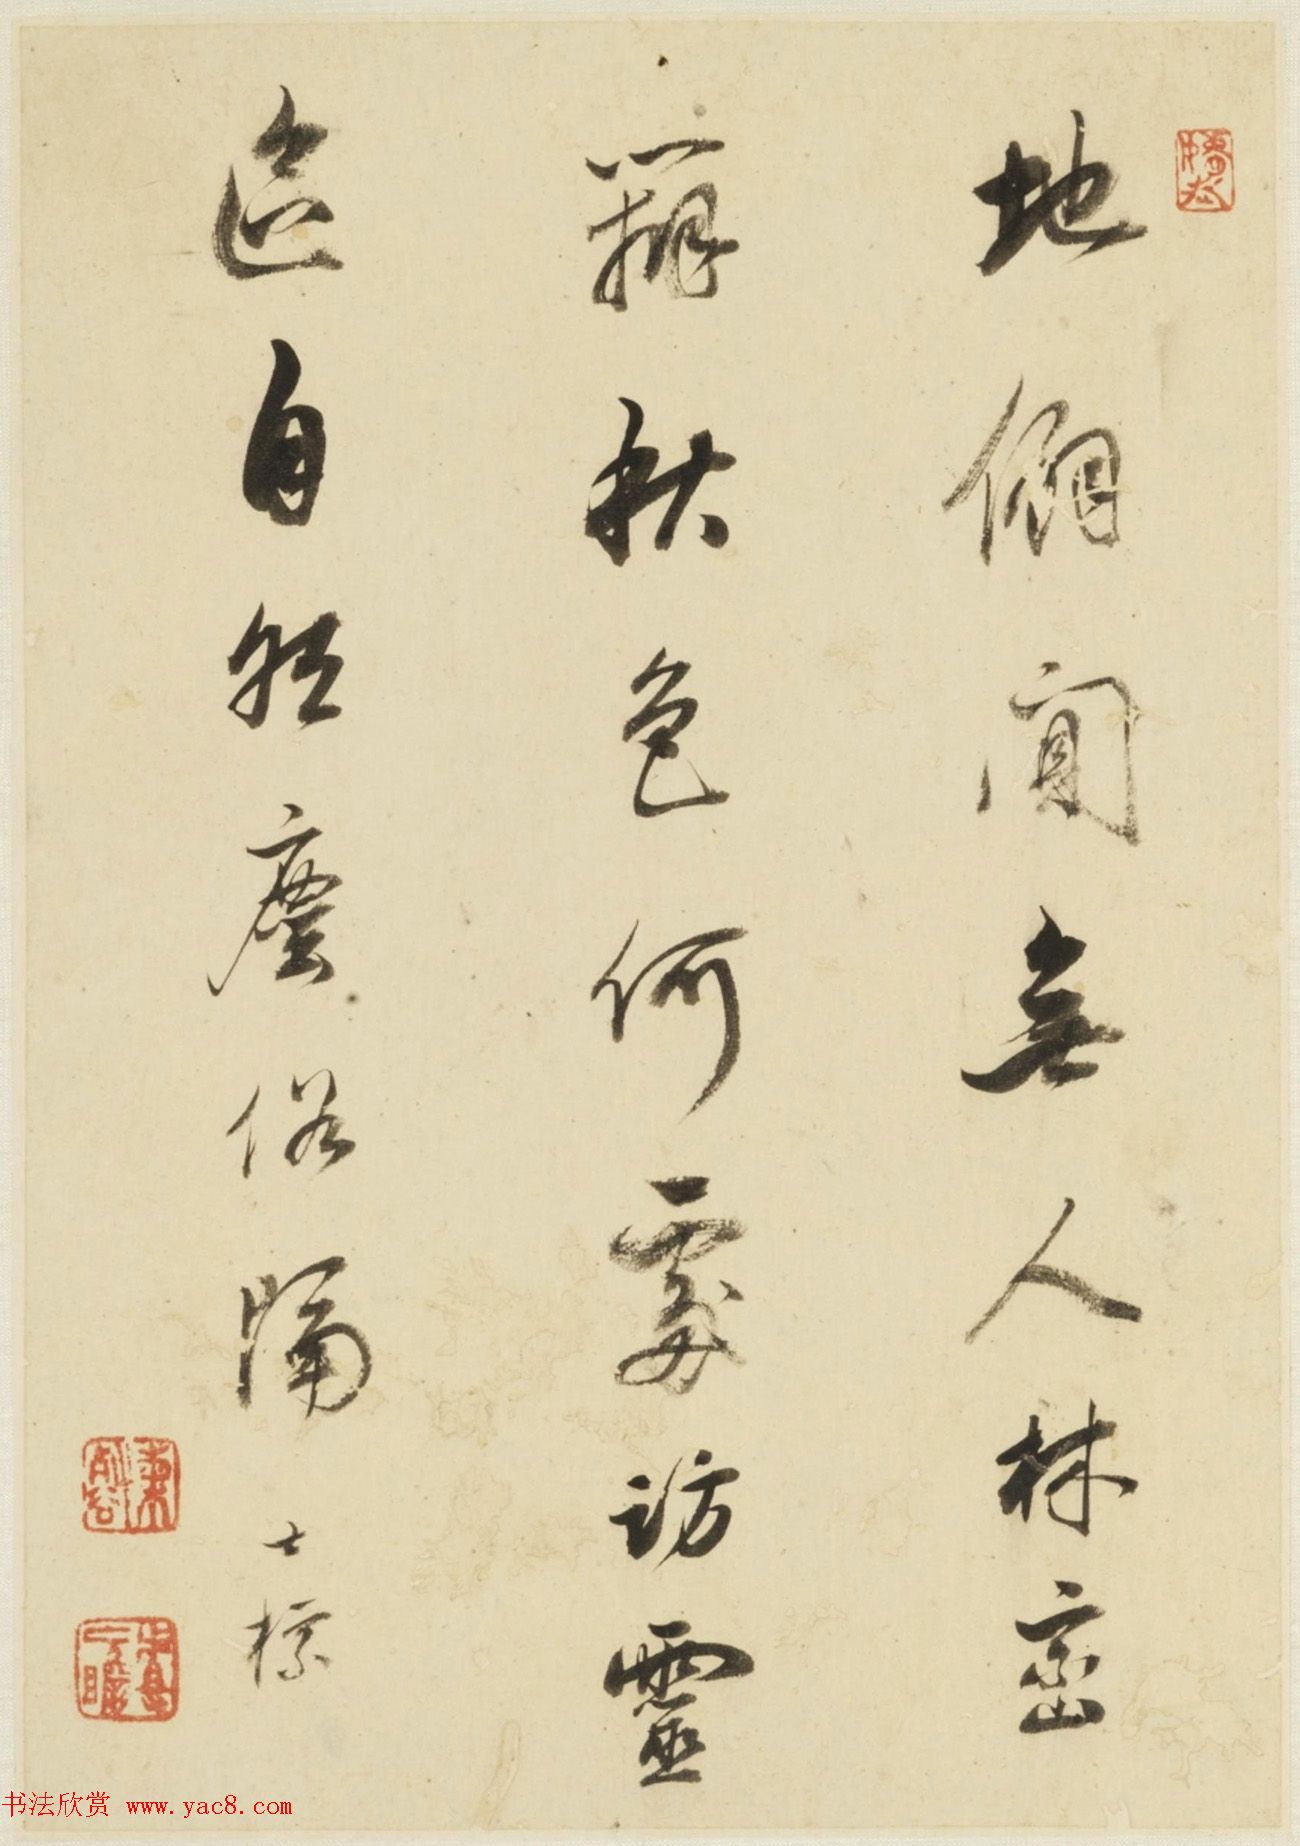 地偏閴無人林峦
秋色何處訪靈
自然塵俗隔
士標
书法欣赏 www.yac8.com